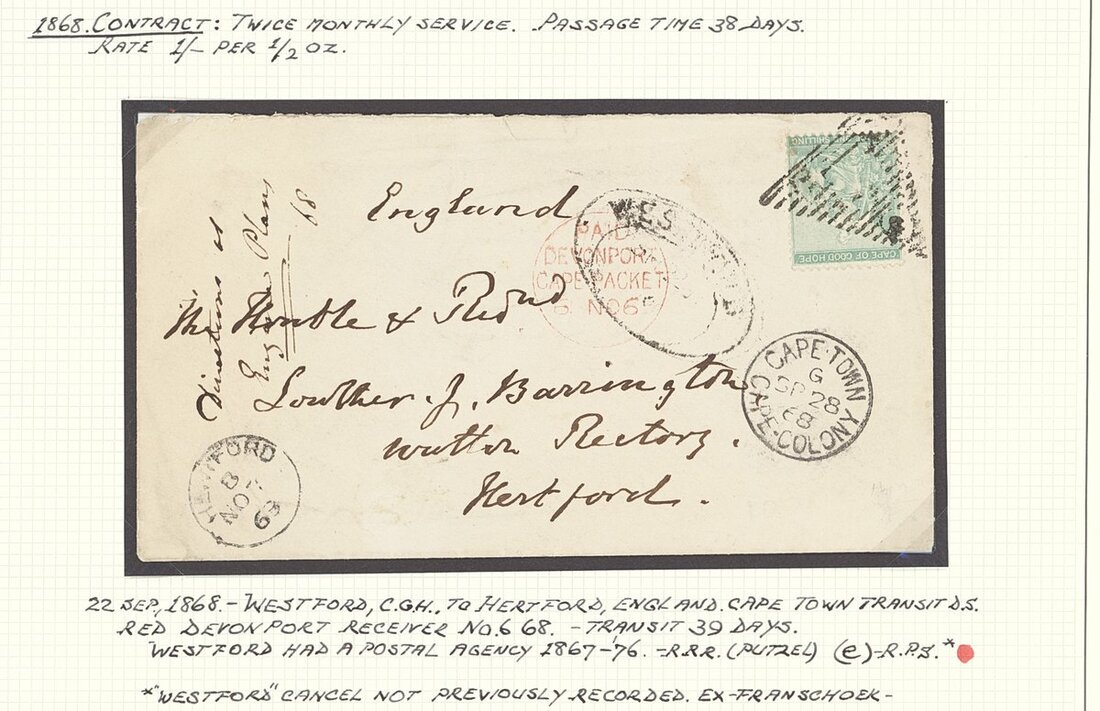 1868. CONTRACT: TWICE MONTHLY SERVICE. PASSAGE TIME 38 DAYS.
RATE 1/- PER 1/2 OZ.
SHILLING
CAPE OF GOOD HOPE
England
68
PAID
DEVONPORT
CAPE PACKET
6 NO 6
WESTFORD
The Honble & Revd
Directions at
Lowther J. Barrington
Watton Rectory.
Hertford.
CAPE-TOWN
G
SP 28
68
CAPE-COLONY
HERTFORD
B
NO 7
68
22 SEP, 1868.- WESTFORD, C.G.H., TO HERTFORD, ENGLAND. CAPE TOWN TRANSIT D.S.
RED DEVONPORT RECEIVER NO.6 68. - TRANSIT 39 DAYS.
WESTFORD HAD A POSTAL AGENCY 1867-'76. -R.R.R. (PUTZEL) (e)-R.P.S.*
*"WESTFORD" CANCEL NOT PREVIOUSLY RECORDED. EX-FRANSCHOEK-